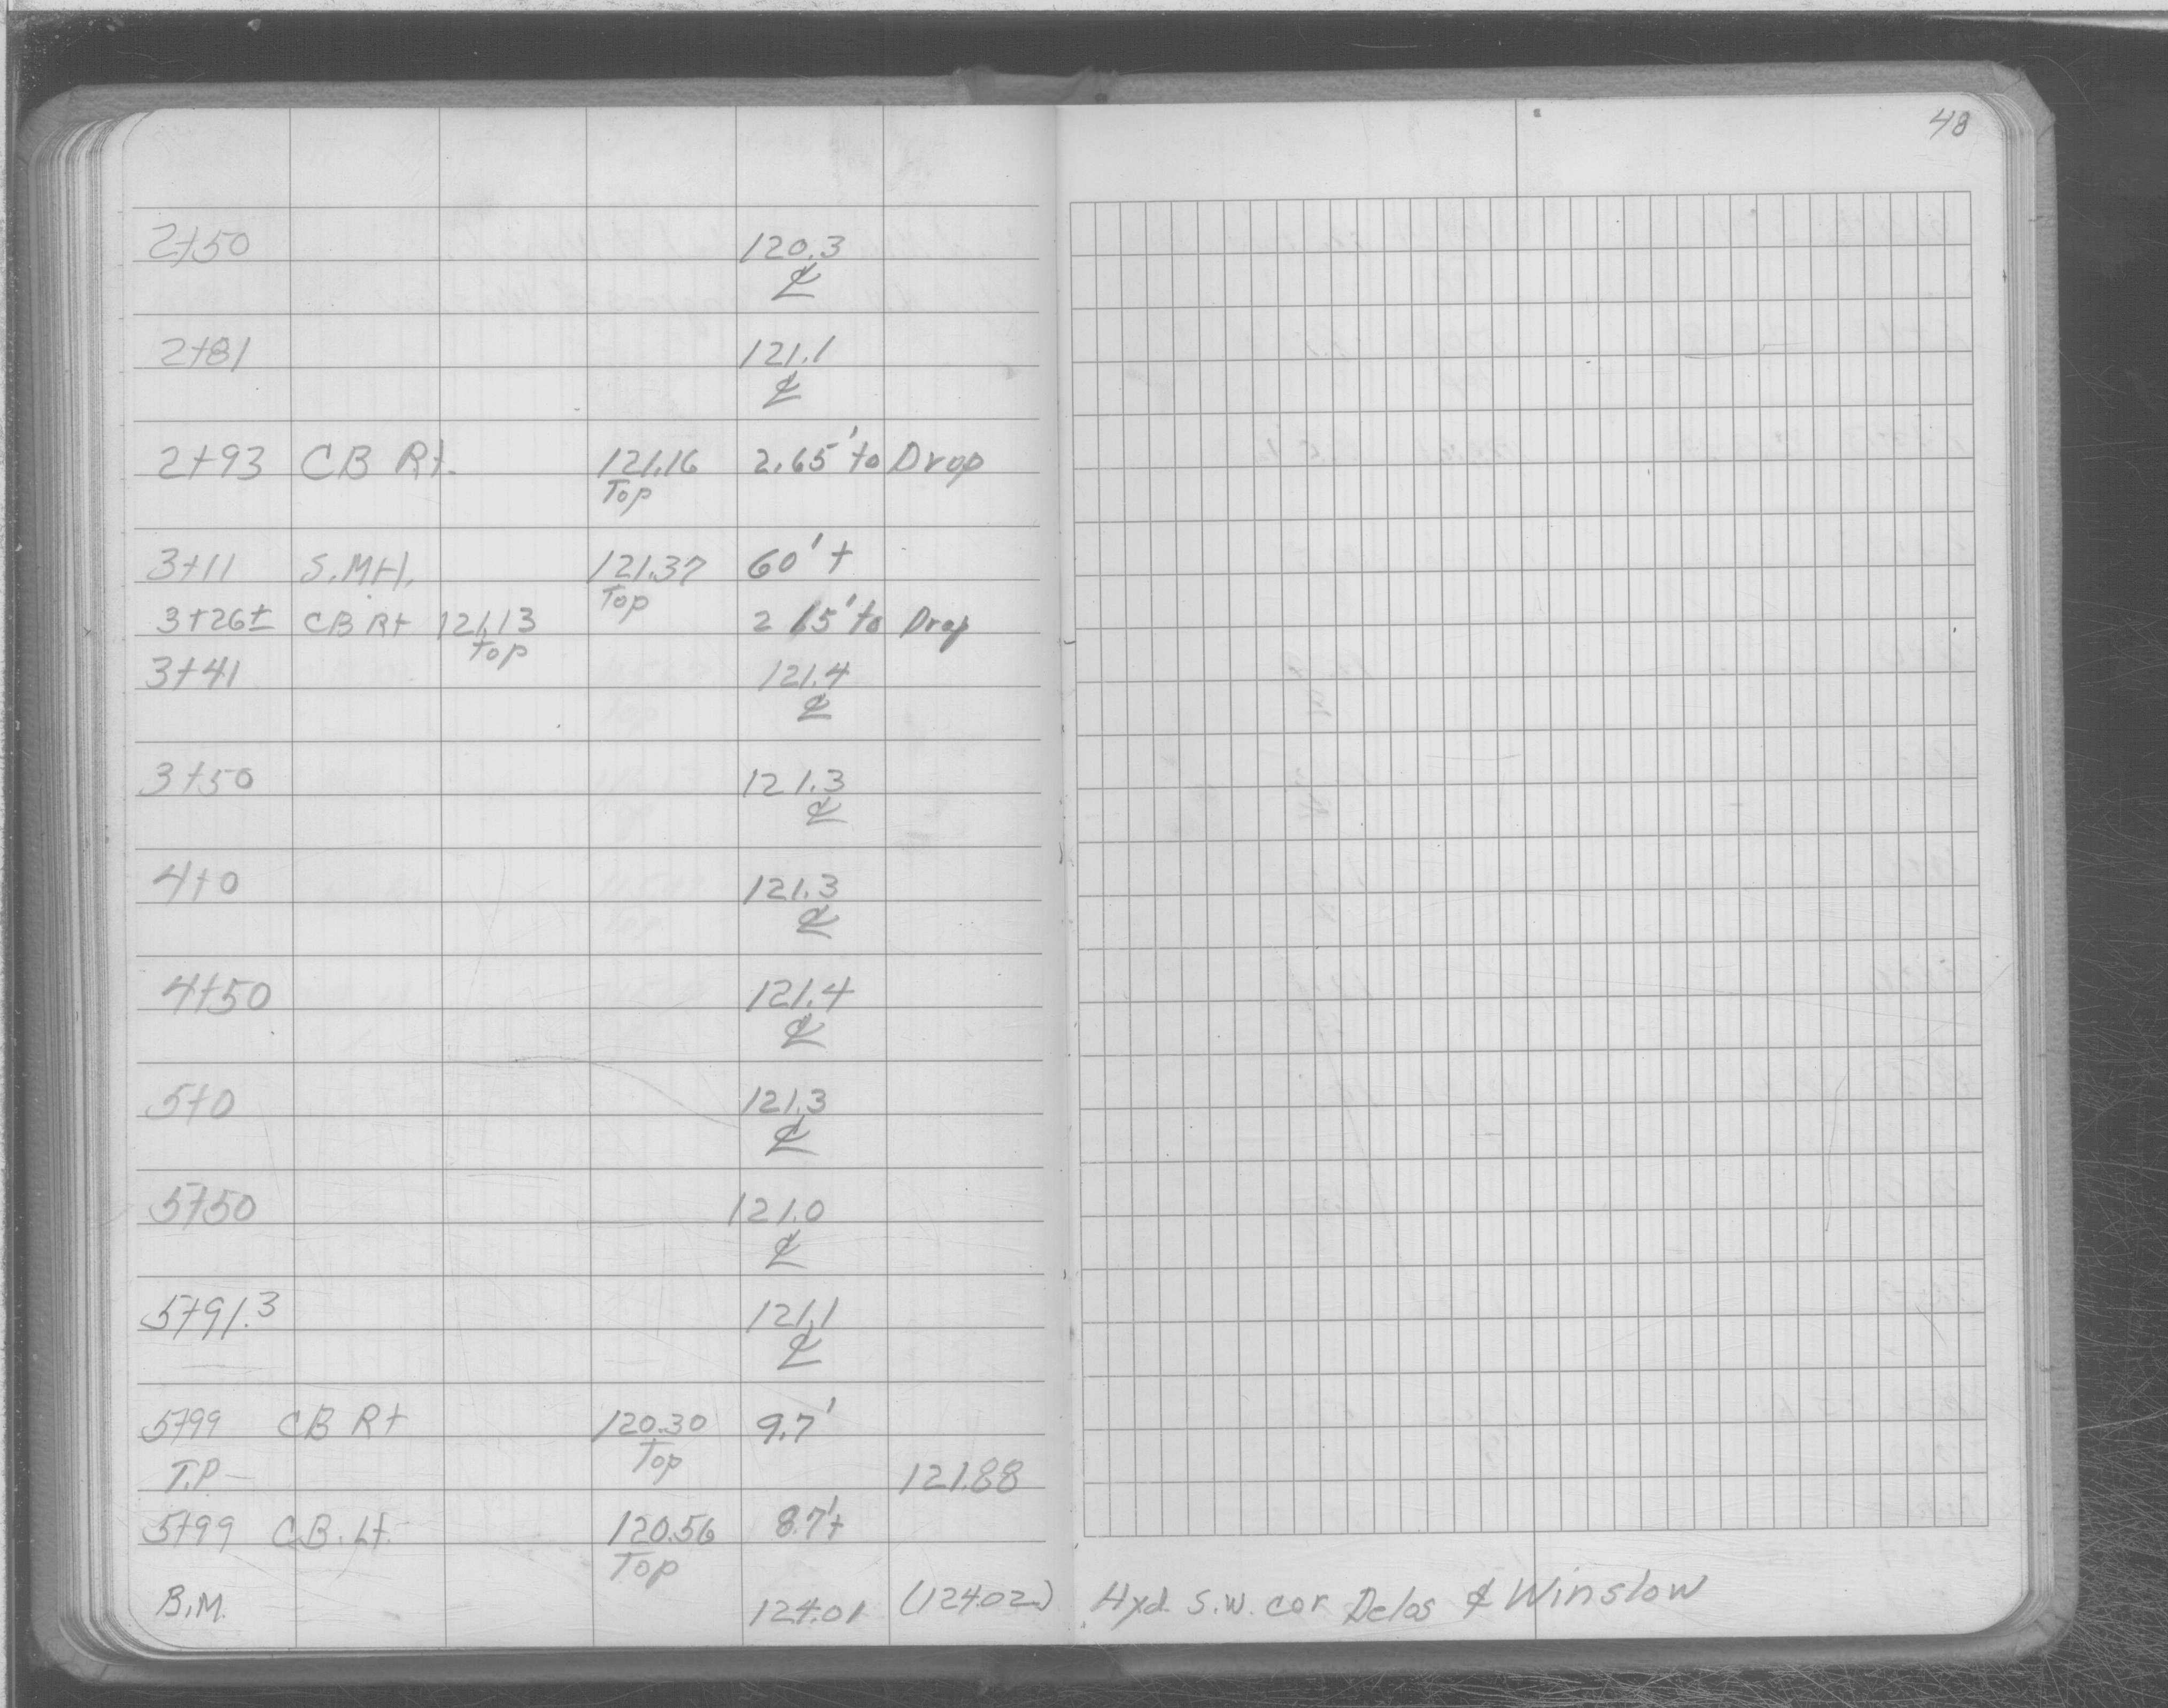 48
2+50 120.3
℄
2+81 121.1
℄
2+93 CB Rt. 121.16 2.65' to Drop
Top
3+11 S.M.H. 121.37 60' +
Top
3+26± CB Rt 121.13 2 65' to Drop
Top
3+41 121.4
℄
3+50 121.3
℄
4+0 121.3
℄
4+50 121.4
℄
5+0 121.3
℄
5+50 121.0
℄
5+91.3 121.1
℄
5+99 CB Rt 120.30 9.7'
Top
T.P. 121.88
5+99 C.B. Lt. 120.56 8.7'+
Top
B.M. 124.01 (124.02) Hyd. S.W. cor Delos & Winslow